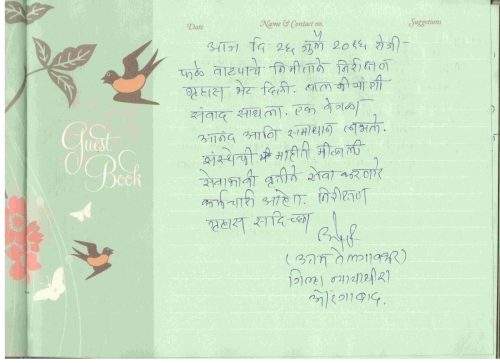 Date Name & Contact no. Suggestions
आज दि २६ जुलै २०१६ रोजी
फळे वाटपाचे निमित्ताने निरीक्षण
गृहास भेट दिली. बालकांशी
संवाद साधला. एक वेगळा
आनंद आणि समाधान लाभले.
संस्थेची माहीती मीळाली
सेवाभावी वृत्तीने सेवा करणारे
कर्मचारी आहेत. निरीक्षण
गृहास सदिच्छा
Guest
Book
(उत्तम तेलगावकर)
जिल्हा न्यायाधीश
औरंगाबाद.